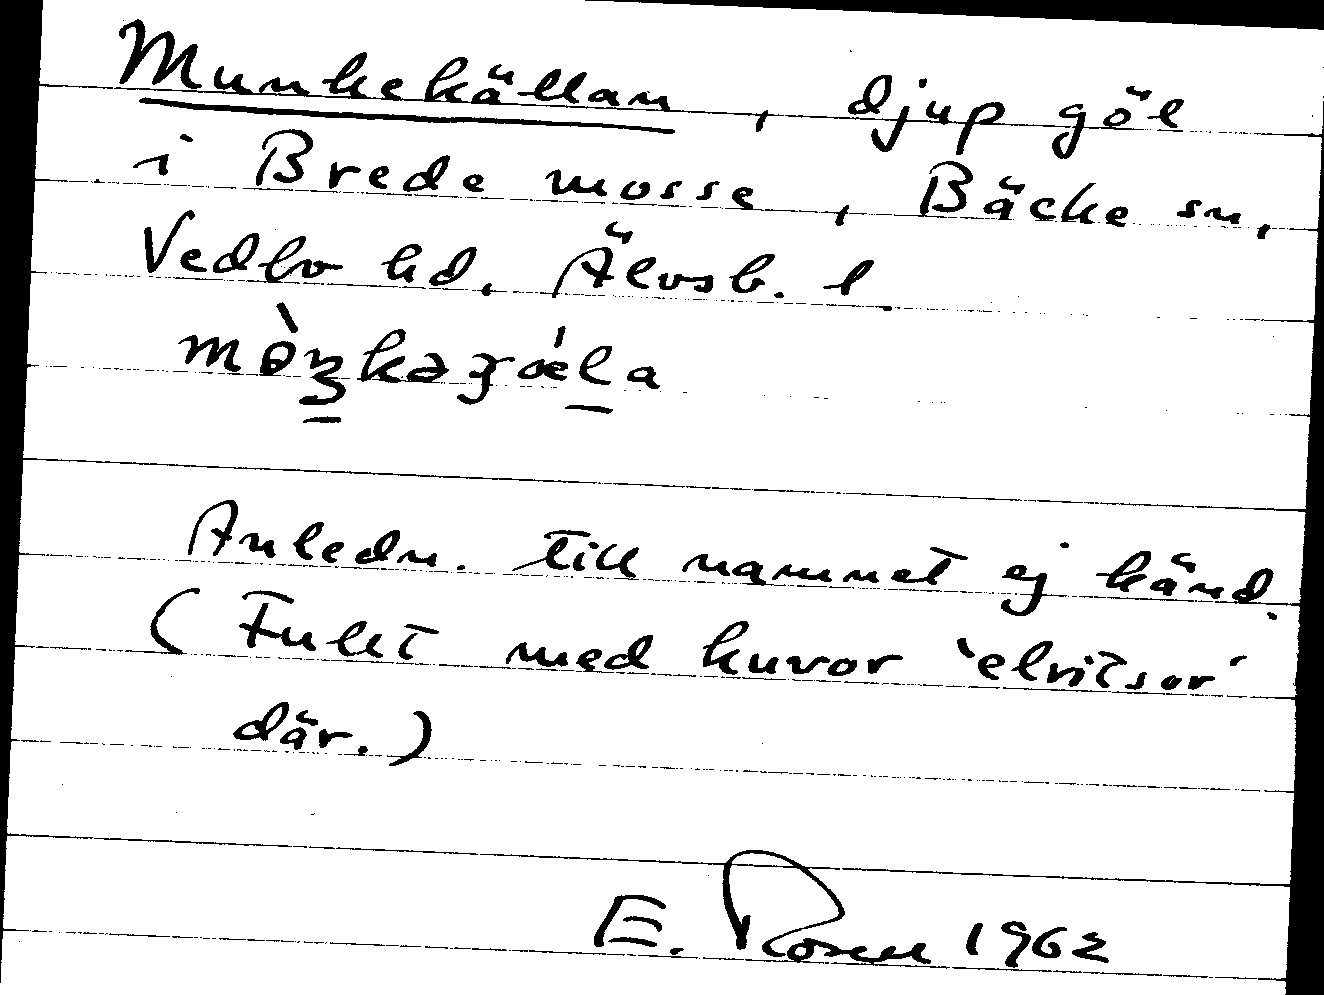 Munkekällan, djup göl
i Brede mosse, Bäcke sn,
Vedbo hd. Älvsb. l
Anledn. till namnet ej känd.
(Fullt med kuvor 'elvitsor'
där.)
E. Rosen 1962